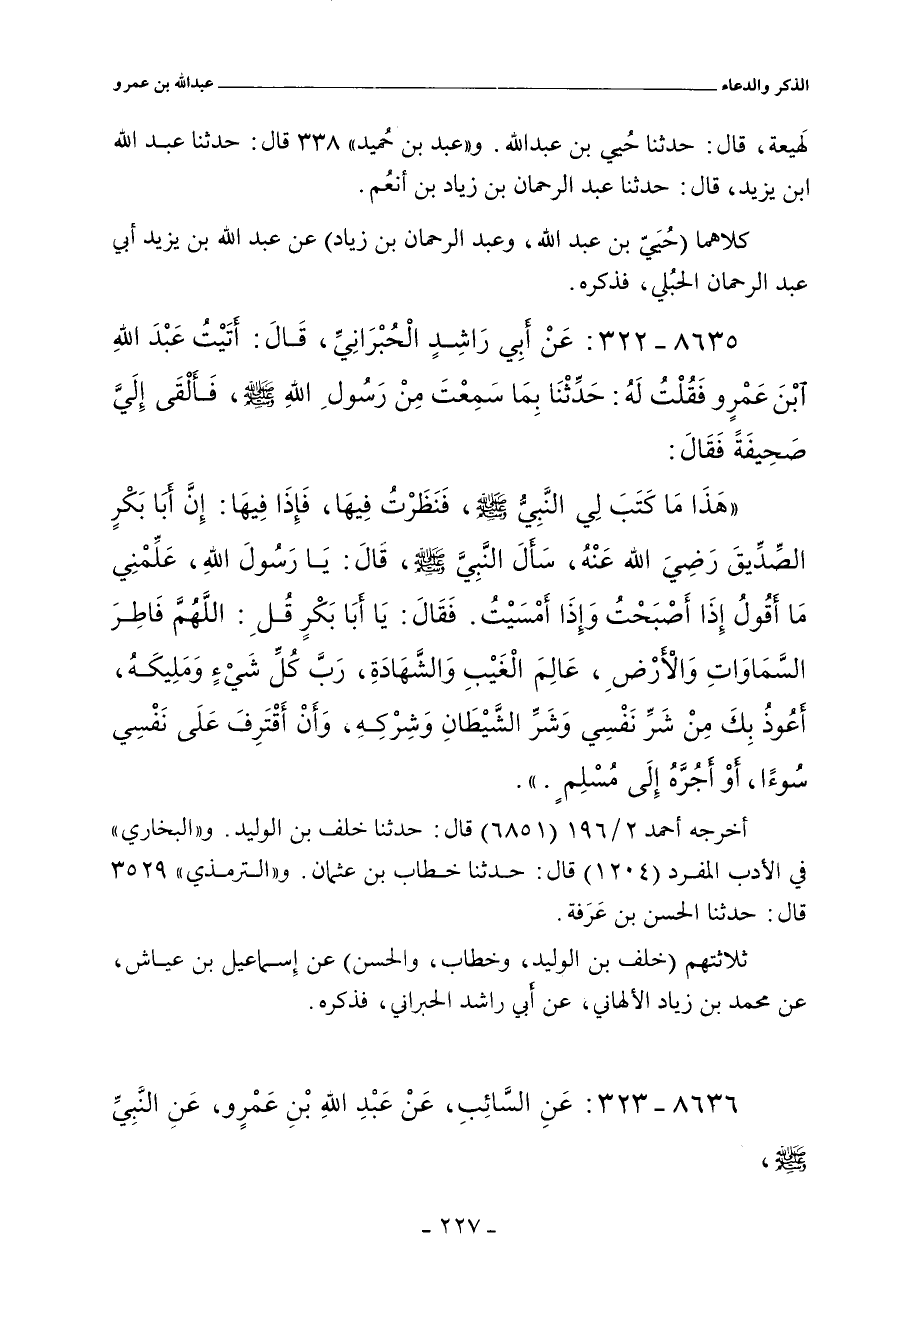 الذكر والدعاء ـــــــــــــــــــــــــــــــــــــــــــــــــ عبدالله بن عمرو
لهيعة، قال: حدثنا حُيي بن عبدالله. و«عبد بن حُميد» ٣٣٨ قال: حدثنا عبد الله
ابن يزيد، قال: حدثنا عبد الرحمان بن زياد بن أنعُم.
كلاهما (حُيَيّ بن عبد الله، وعبد الرحمان بن زياد) عن عبد الله بن يزيد أبي
عبد الرحمان الحُبُلي، فذكره.
٨٦٣٥ ـ ٣٢٢: عَنْ أَبِي رَاشِدٍ الْحُبْرَانِيِّ، قَالَ: أَتَيْتُ عَبْدَ اللهِ
ٱبْنَ عَمْرٍو فَقُلْتُ لَهُ: حَدِّثْنَا بِمَا سَمِعْتَ مِنْ رَسُولِ اللهِ ﷺ، فَأَلْقَى إِلَيَّ
صَحِيفَةً فَقَالَ:
«هَذَا مَا كَتَبَ لِي النَّبِيُّ ﷺ، فَنَظَرْتُ فِيهَا، فَإِذَا فِيهَا: إِنَّ أَبَا بَكْرٍ
الصِّدِّيقَ رَضِيَ الله عَنْهُ، سَأَلَ النَّبِيَّ ﷺ، قَالَ: يَا رَسُولَ اللهِ، عَلِّمْنِي
مَا أَقُولُ إِذَا أَصْبَحْتُ وَإِذَا أَمْسَيْتُ. فَقَالَ: يَا أَبَا بَكْرٍ قُلِ: اللَّهُمَّ فَاطِرَ
السَّمَاوَاتِ وَالْأَرْضِ، عَالِمَ الْغَيْبِ وَالشَّهَادَةِ، رَبَّ كُلِّ شَيْءٍ وَمَلِيكَهُ،
أَعُوذُ بِكَ مِنْ شَرِّ نَفْسِي وَشَرِّ الشَّيْطَانِ وَشِرْكِهِ، وَأَنْ أَقْتَرِفَ عَلَى نَفْسِي
سُوءًا، أَوْ أَجُرَّهُ إِلَى مُسْلِمٍ.».
أخرجه أحمد ١٩٦/٢ (٦٨٥١) قال: حدثنا خلف بن الوليد. و«البخاري»
في الأدب المفرد (١٢٠٤) قال: حدثنا خطاب بن عثمان. و«الترمذي» ٣٥٢٩
قال: حدثنا الحسن بن عَرَفة.
ثلاثتهم (خلف بن الوليد، وخطاب، والحسن) عن إسماعيل بن عياش،
عن محمد بن زياد الألهاني، عن أَبي راشد الحبراني، فذكره.
٨٦٣٦ ـ ٣٢٣: عَنِ السَّائِبِ، عَنْ عَبْدِ اللهِ بْنِ عَمْرٍو، عَنِ النَّبِيِّ
ﷺ،
ـ ٢٢٧ ـ